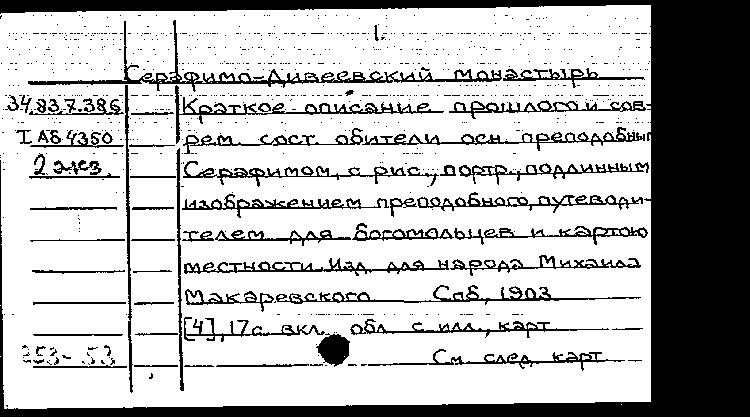 1.
Серафимо-Дивеевский монастырь
34.83.7.386 Краткое описание прошлого и сов-
I Аб 4350 рем. сост. обители осн. преподобным
2 экз. Серафимом, с рис., портр., подлинным
изображением преподобного, путеводи-
телем для богомольцев и картою
местности. Изд. для народа Михаила
Макаревского Спб, 1903
[4], 17 с. вкл. обл. с илл., карт
253-53 См. след. карт